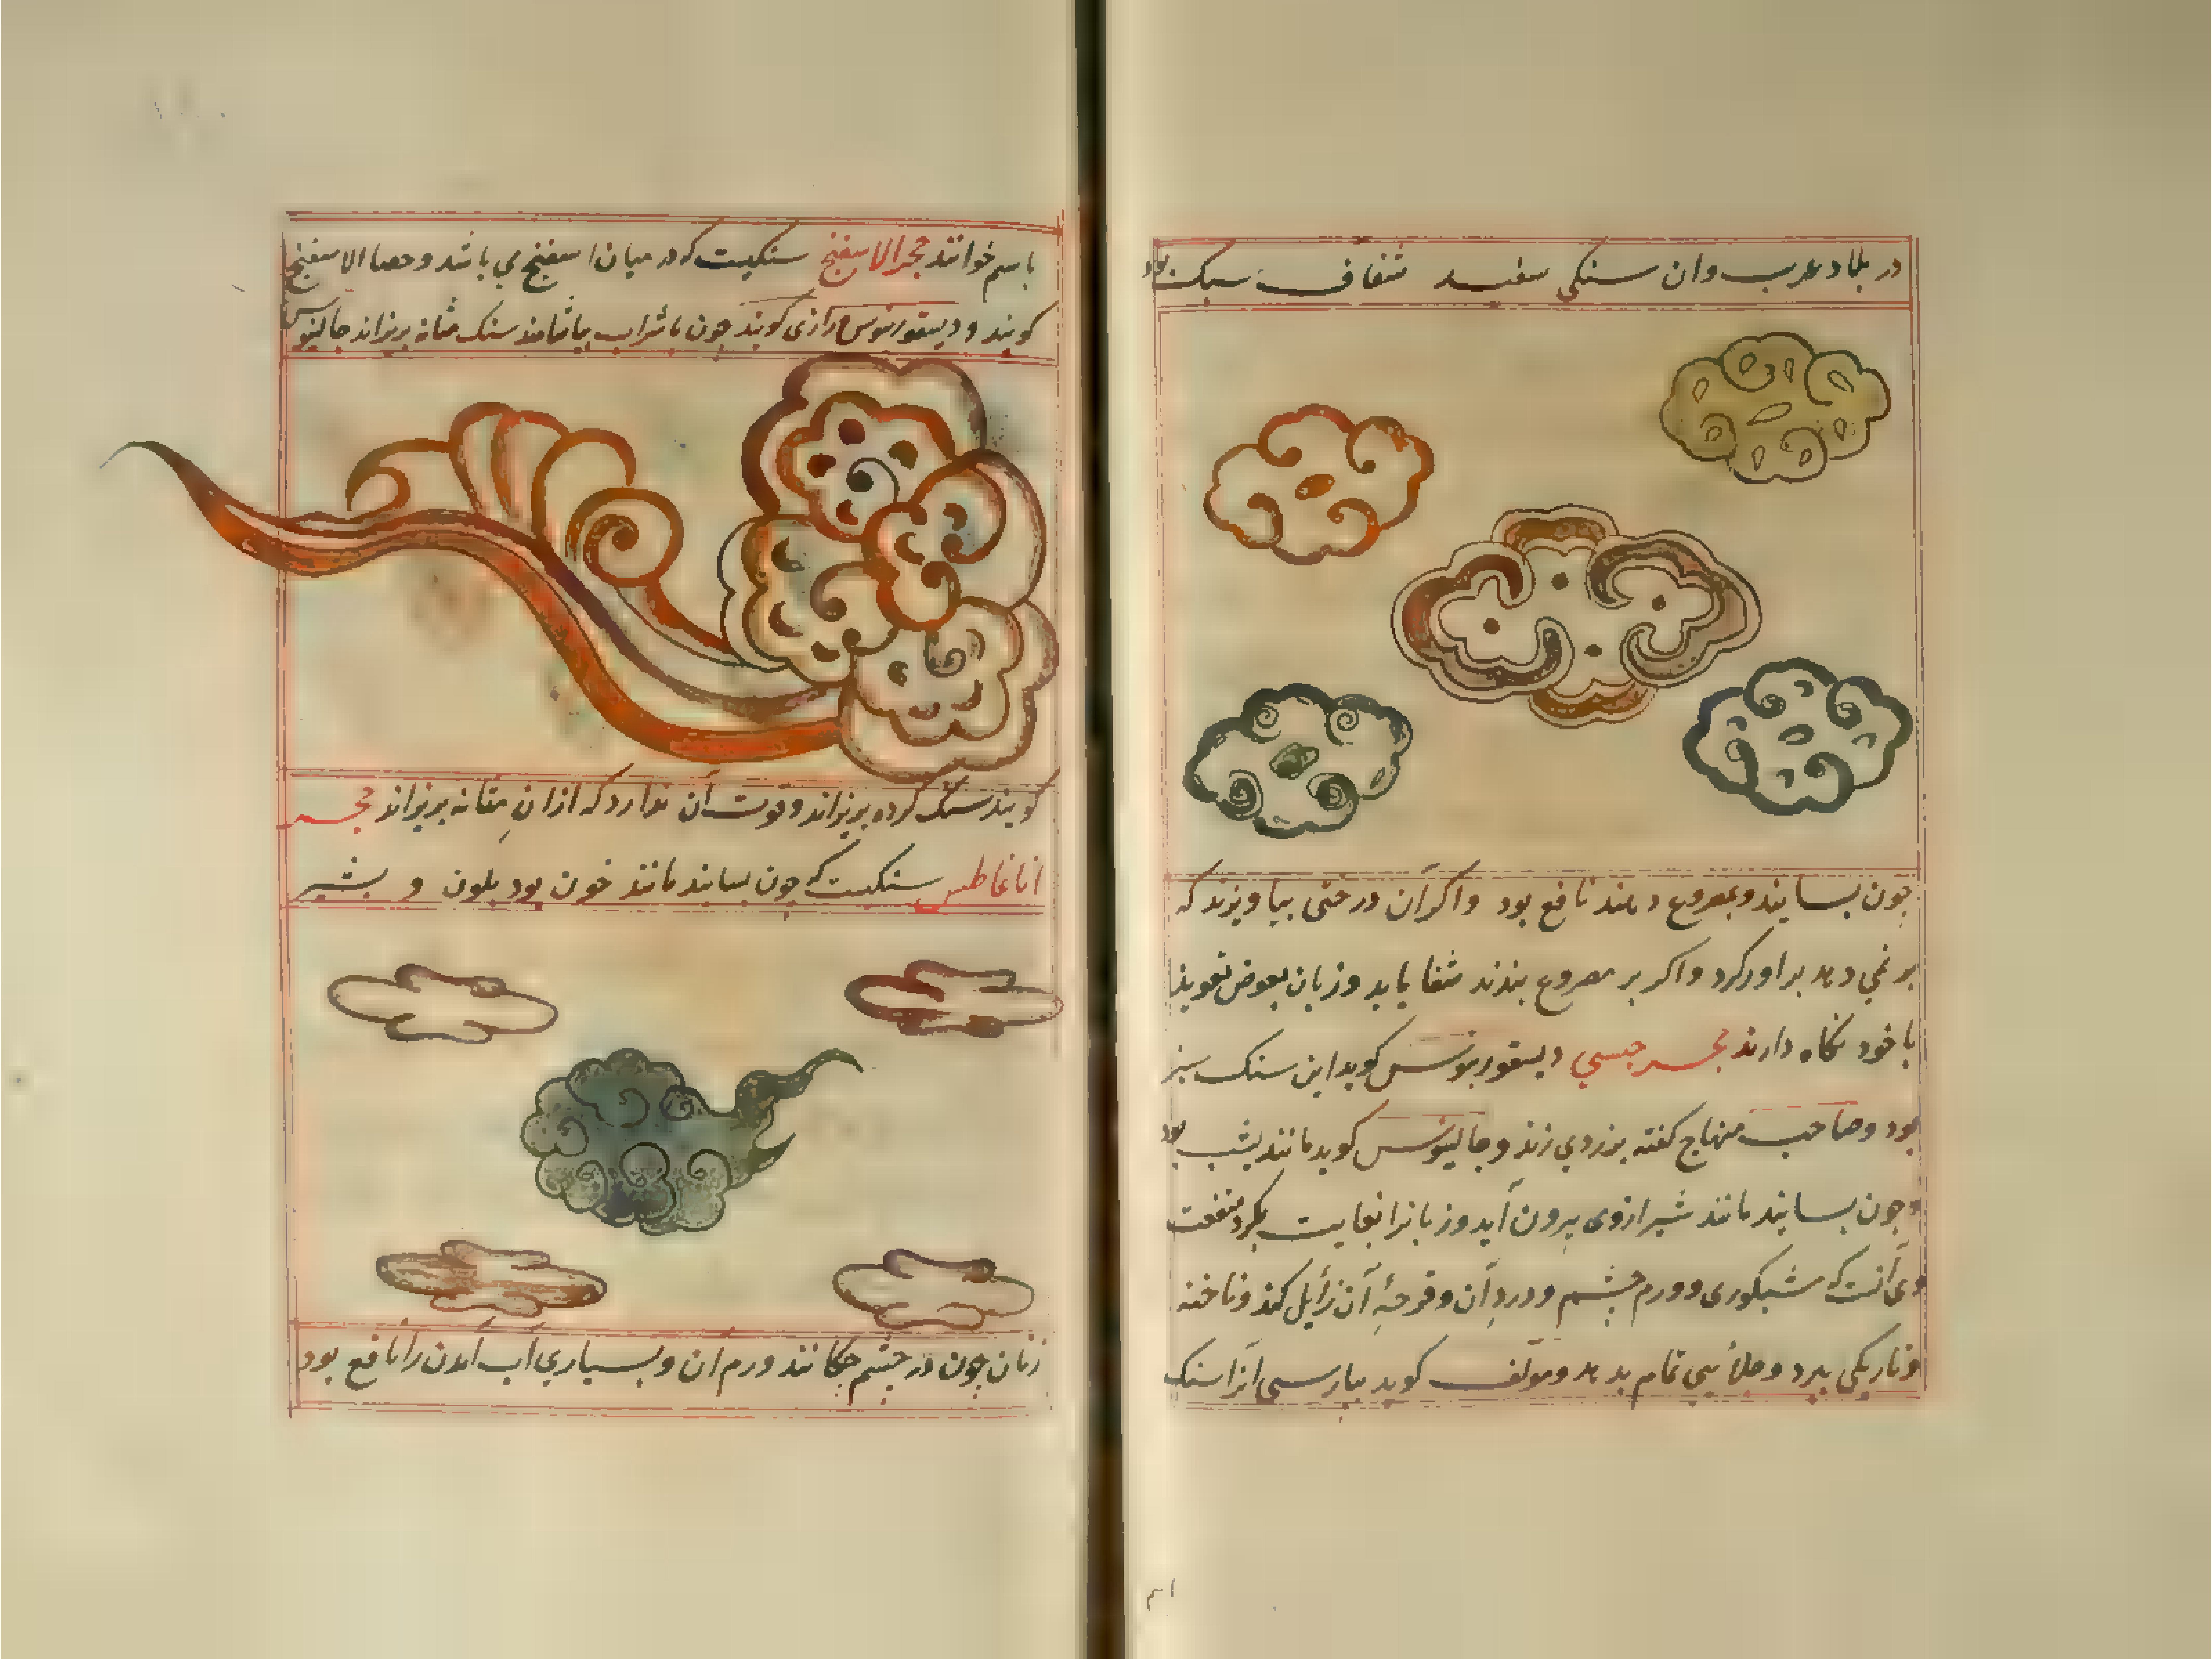 در بلاد عرب وان سنکی سفید شفاف سبک بود
چون بسایند وبمصروع دهند نافع بود واکر آن درختی بیاویزند که
بر نمی دهد براورکرد واکر بر مصروع بندند شفا یابد وزنان بعوض تعویذ
با خود نکاه دارند حجر حبسی دیسقوریدوس کوید این سنک سبز
بود وصاحب منهاج کفته بزردی زند وجالینوس کوید مانند یشب بود
وچون بسایند مانند شیر ازوی بیرون آید وزبانرا بغایت بکزد منفعت
وی آنست که شبکوری وورم چشم ودرد آن وقرحهٔ آن زایل کند وناخنه
وتاریکی ببرد وجلائی تمام بدهد ومولف کوید بپارسی آنرا سنک
ام
باسم خوانند حجر الاسفنج سنکیست که در میان اسفنج می باشد وحصا الاسفنج
کویند و دیسقوریدوس ورازی کویند چون با شراب بیاشامند سنک مثانه بریزاند جالینوس
کویند سنک کرده بریزاند وقوت آن ندارد که از ان مثانه بریزاند حجر
اناغاطس سنکیست که چون بسایند مانند خون بود بلون و بشیر
زنان چون در چشم چکانند ورم ان وبسیاری آب آمدن را نافع بود